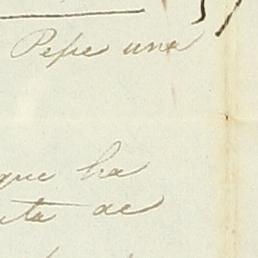 Pepe una
que ha
de